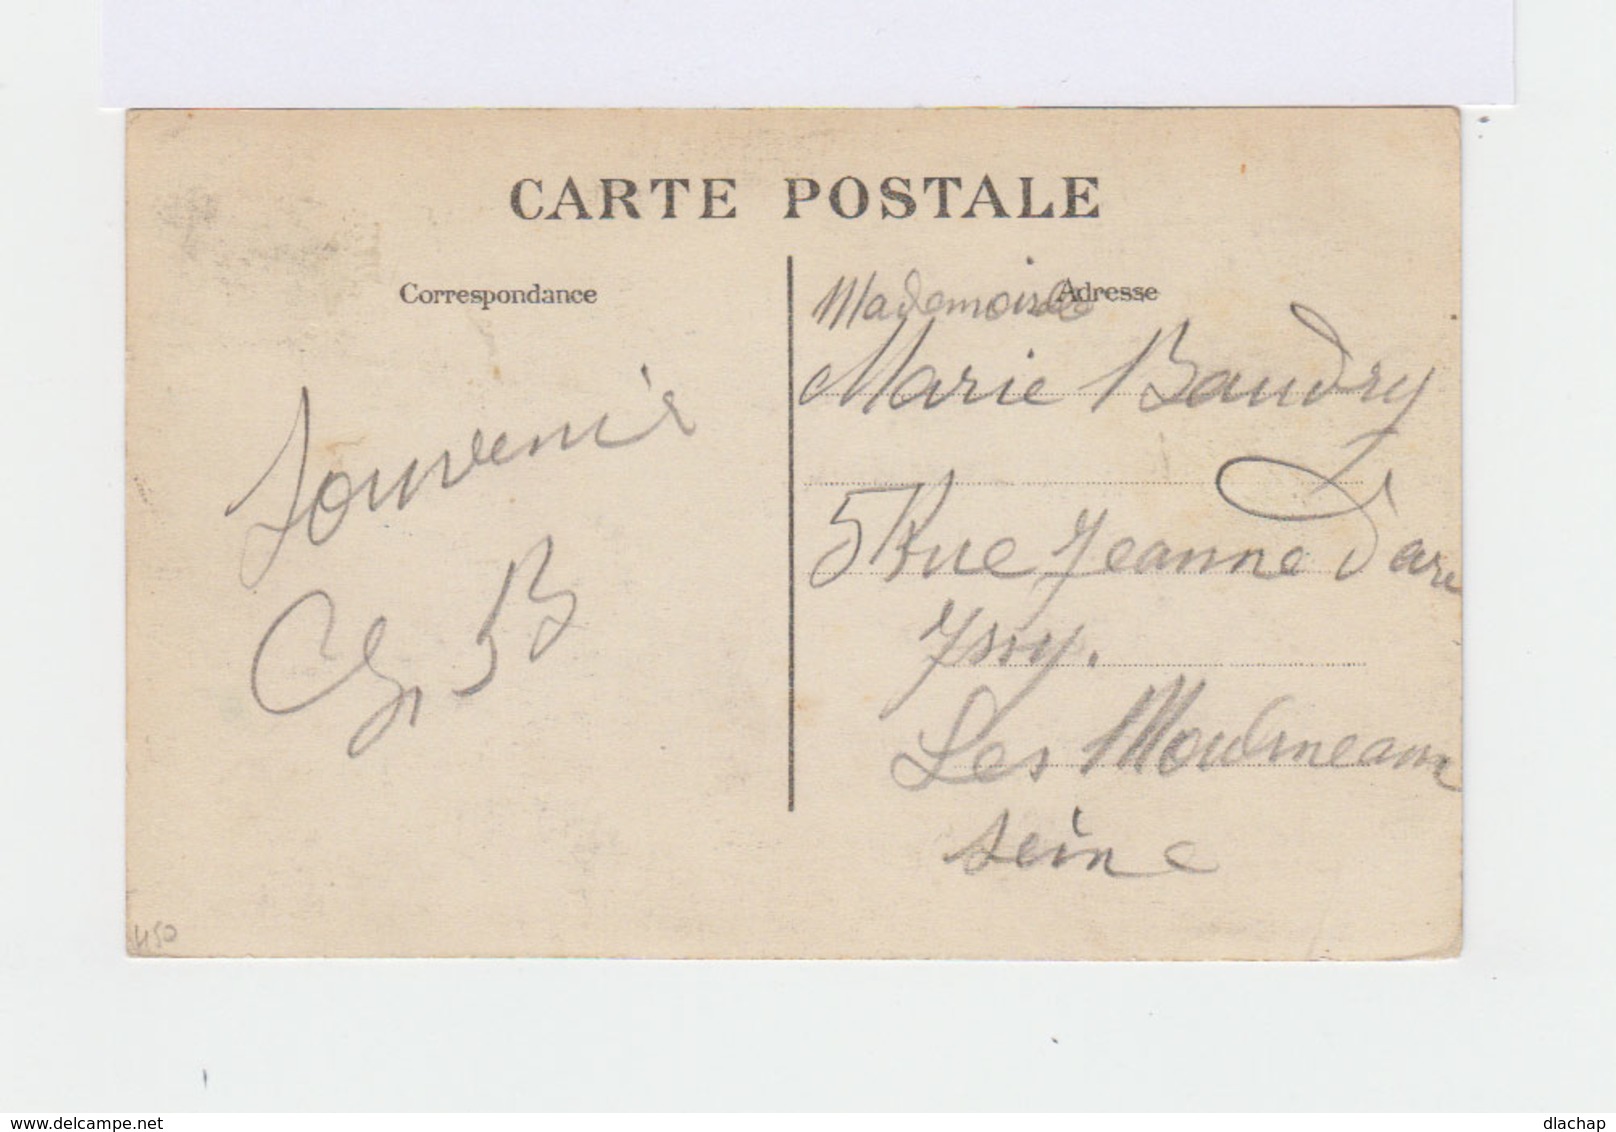 CARTE POSTALE
Correspondance
Souvenir
Ch. B
Adresse
Mademoiselle
Marie Baudry
5 Rue Jeanne Darc
Issy.
Les Moulineaux
Seine
450
www.delcampe.net
dlachap